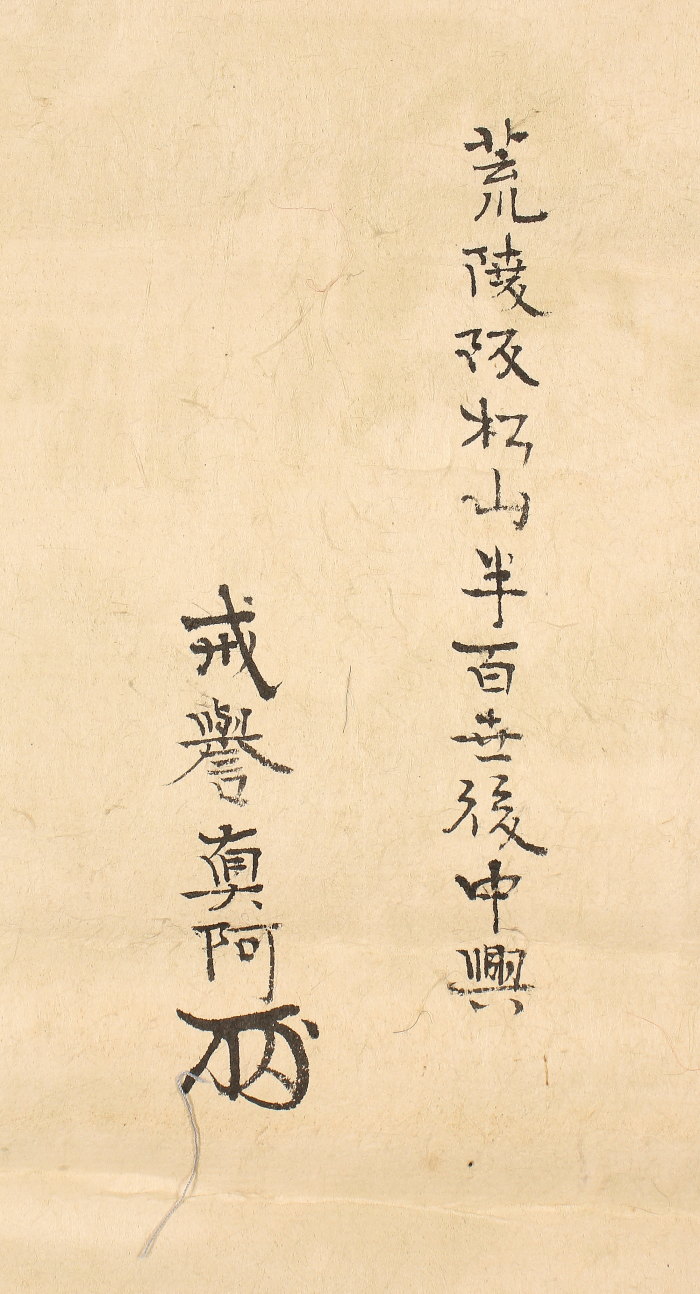 荒陵阪松山半百世後中興
戒譽眞阿